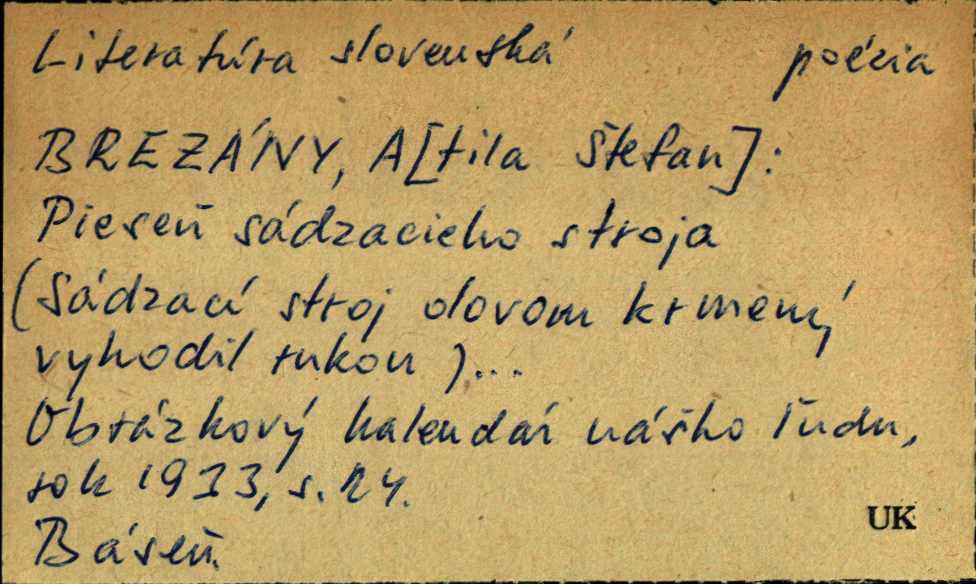 Literatúra slovenská poézia
BREZÁNY, A[tila Štefan]:
Pieseň sádzacieho stroja
(Sádzací stroj olovom kŕmený
vyhodil rukou)...
Obrázkový kalendár nášho ľudu,
rok 1933, s. 24.
UK
Báseň.